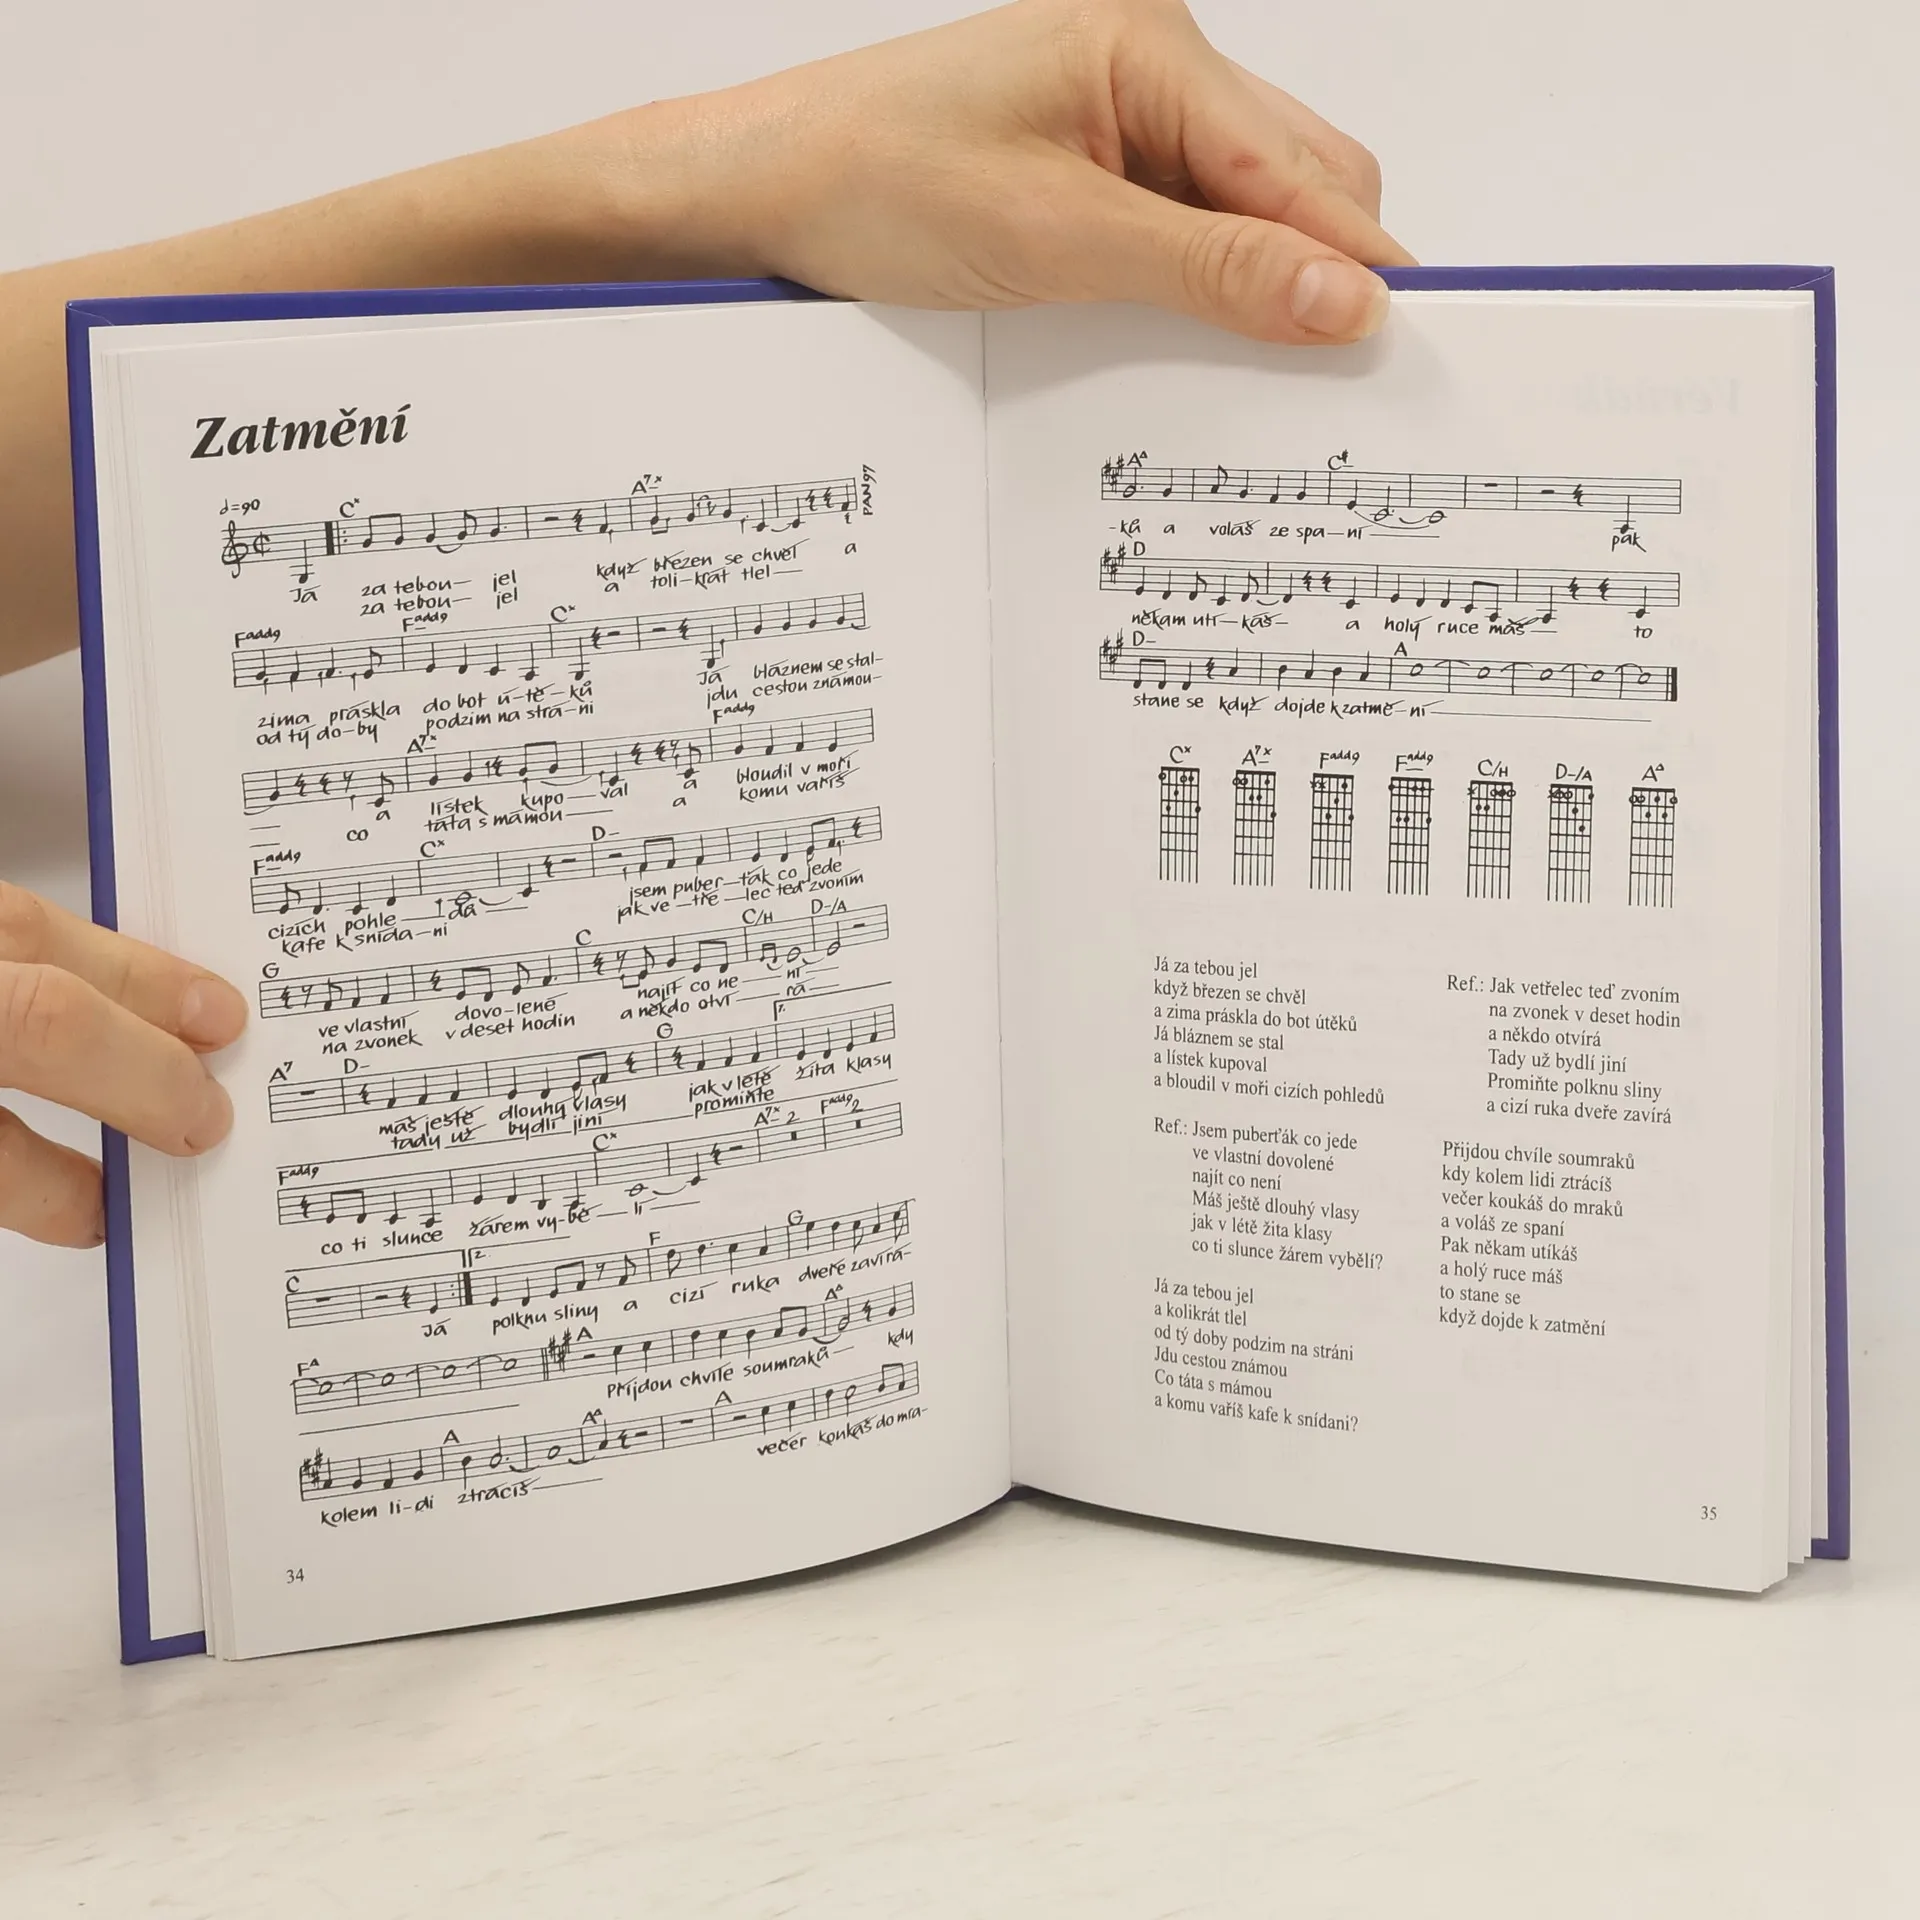 Zatmění
d=90
Cˣ
A⁷ˣ
PAN97
Já za tebou— jel když březen se chvěl a
za tebou— jel a toli-krát tlel—
Fadd9 Fadd9 Cˣ
zima práskla do bot ú-tě-ků Já bláznem se stal-
od tý do-by podzim na strá-ni jdu cestou známou-
A⁷ˣ Fadd9
a lístek kupo—val a bloudil v moři
co táta s mámou— a komu vaříš
Fadd9 Cˣ D–
cizích pohle—dů jsem puber-ťák co jede
kafe k snída-ni jak ve-tře-lec teď zvoním
G C C/H D-/A
ve vlastní dovo-lené najít co ne—ní—
na zvonek v deset hodin a někdo otví—rá—
A⁷ D– G 1.
máš ještě dlouhý vlasy jak v létě žita klasy
tady už bydlí jiní promiňte
Fadd9 Cˣ A⁷ˣ 2 Fadd9 2
co ti slunce žárem vy-bě—lí—
C 2. F G
Já polknu sliny a cizí ruka dveře zavírá-
F∆ A A∆
Přijdou chvíle soumraků— kdy
A A∆ A
kolem li-dí ztrácíš— večer koukáš do mra-
34
A∆ C#
-ků a voláš ze spa—ní— pak
D
někam utí-káš- a holý ruce máš— to
D– A
stane se když dojde k zatmě-ní—
Cˣ A⁷ˣ Fadd9 Fadd9 C/H D-/A A∆
Já za tebou jel
když březen se chvěl
a zima práskla do bot útěků
Já bláznem se stal
a lístek kupoval
a bloudil v moři cizích pohledů
Ref.: Jsem puberťák co jede
ve vlastní dovolené
najít co není
Máš ještě dlouhý vlasy
jak v létě žita klasy
co ti slunce žárem vybělí?
Já za tebou jel
a kolikrát tlel
od tý doby podzim na stráni
Jdu cestou známou
Co táta s mámou
a komu vaříš kafe k snídani?
Ref.: Jak vetřelec teď zvoním
na zvonek v deset hodin
a někdo otvírá
Tady už bydlí jiní
Promiňte polknu sliny
a cizí ruka dveře zavírá
Přijdou chvíle soumraků
kdy kolem lidi ztrácíš
večer koukáš do mraků
a voláš ze spaní
Pak někam utíkáš
a holý ruce máš
to stane se
když dojde k zatmění
35